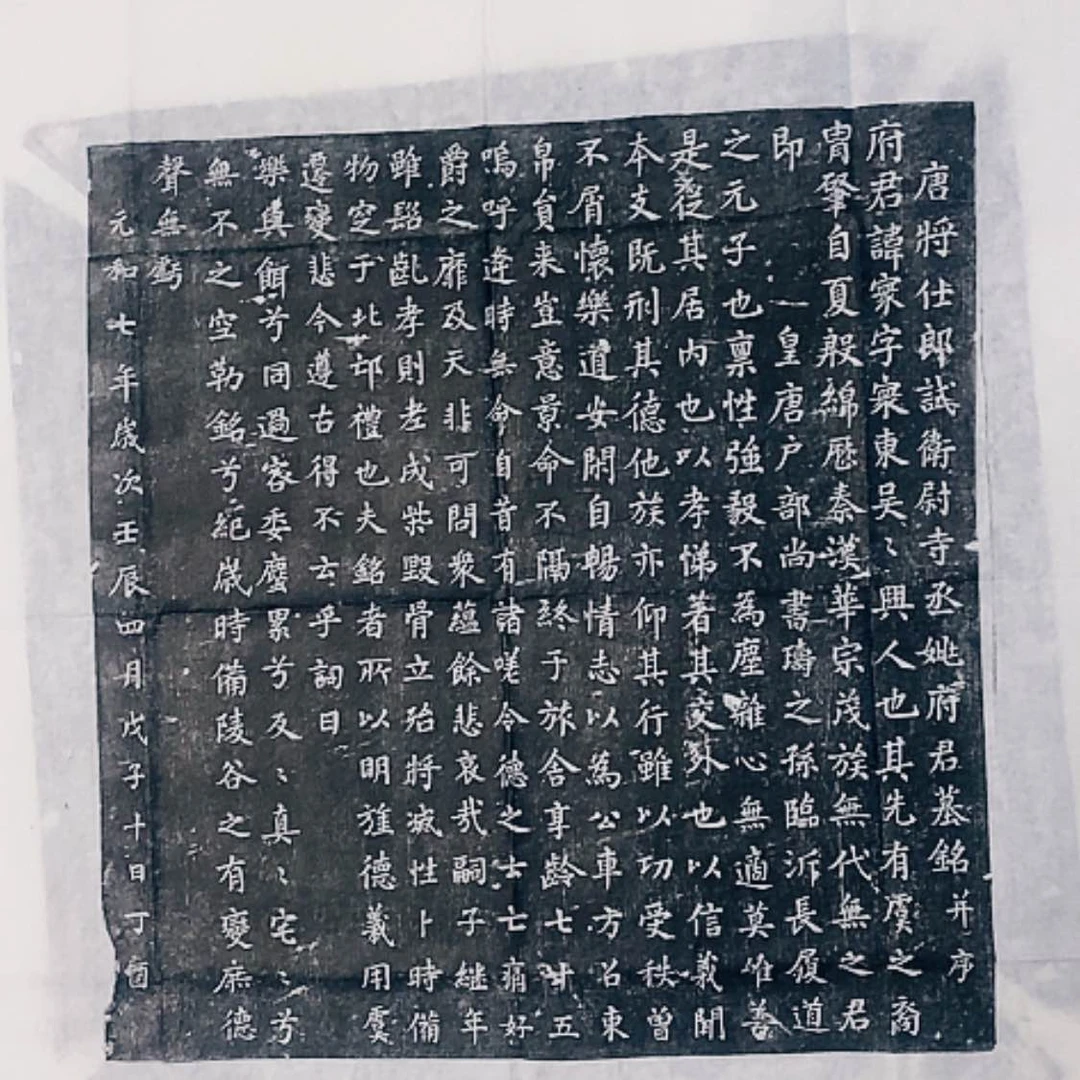 唐將仕郎試衛尉寺丞姚府君墓銘并序
府君諱家字寀東吳〻興人也其先有虞之裔
胄肇自夏殷綿歷秦漢華宗茂族無代無之君
即皇唐户部尚書璹之孫臨沂長履道
之元子也禀性強毅不為塵離心無適莫惟善
是從其居内也以孝悌著其交外也以信義聞
本支既刑其德他族亦仰其行雖以功受秩曾
不屑懷樂道安閑自暢情志以為公車方召東
帛賁来豈意景命不隔終于旅舍享齡七十五
嗚呼逢時無命自昔有諸嗟令德之士亡痛好
爵之靡及天悲可問衆蘊餘悲哀哉嗣子継年
雖髫齔孝則老成柴毁骨立殆將滅性卜時備
物空于北邙禮也夫銘者所以明旌德義用虞
遷變悲今遵古得不云乎詞曰
樂真餌兮同過客委塵累兮反〻真〻宅〻兮
無不之空勒銘兮紀歲時備陵谷之有變庶德
聲無虧
元和七年歲次壬辰四月戊子十日丁酉